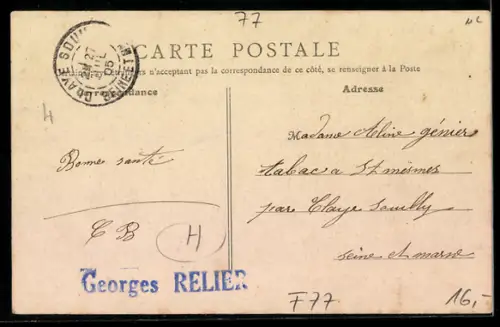 77
nc
CARTE POSTALE
n'acceptant pas la correspondance de ce côté, se renseigner à la Poste
Correspondance
Adresse
CLAYE SOU
27
05
SEINE ET M
4
Madame Aline génier
tabac a St mesmes
par Claye Souilly
Seine et marne
Bonne santé
C B
H
Georges RELIER
F77
16,-